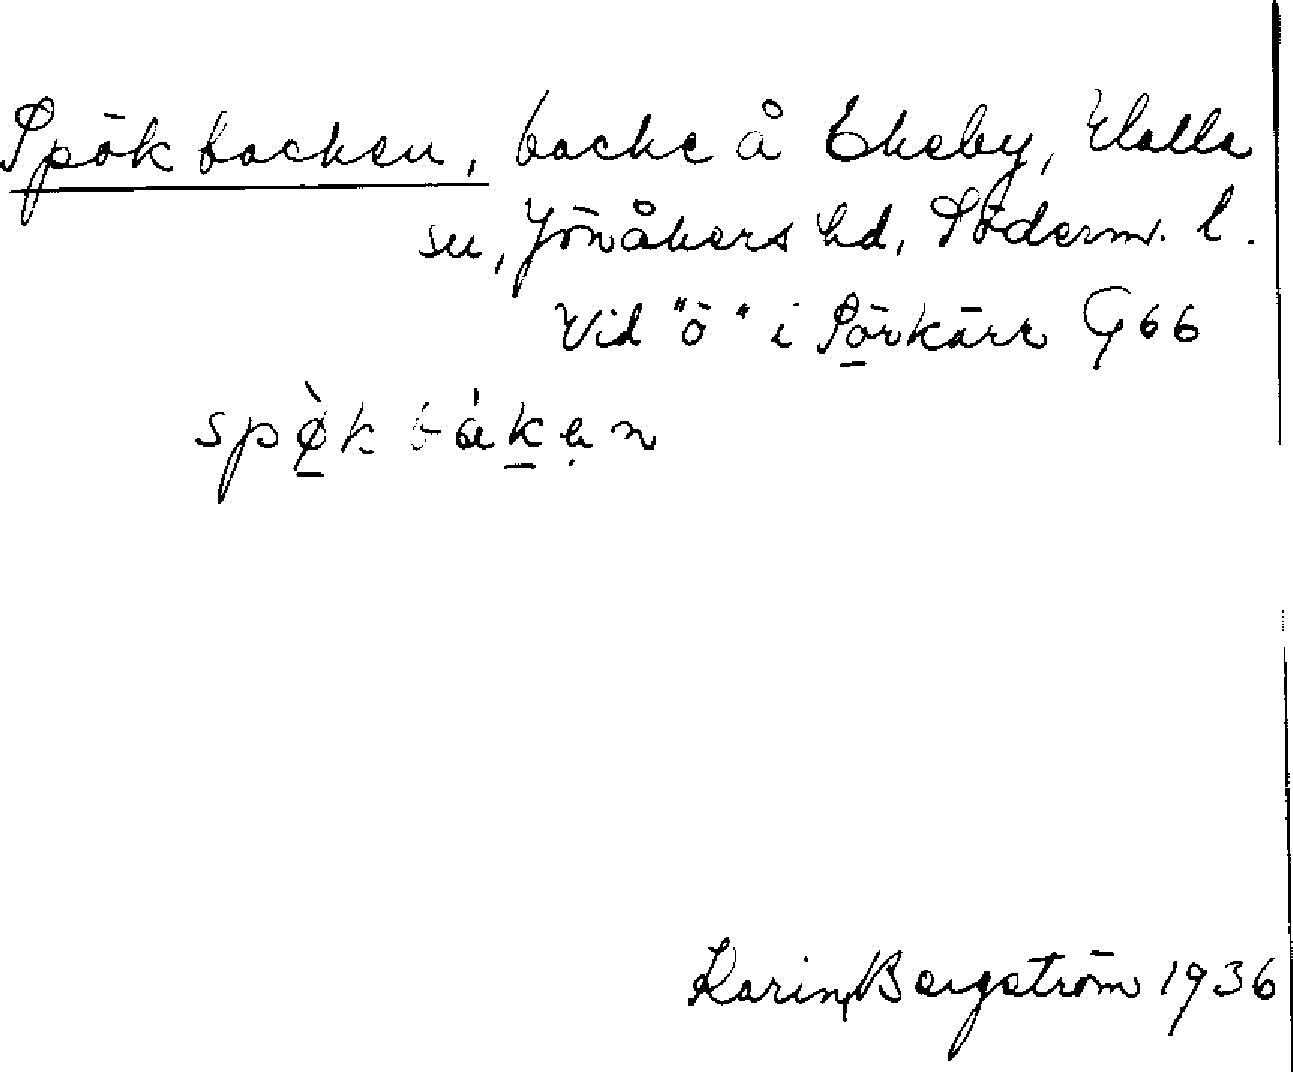 Spökbacken, backe å Ekeby, Halla
sn, Jönåkers hd, Söderm. l.
Vid "ö" i Sörkärr G66
spø̀k bákȧn
Karin Bergström 1936